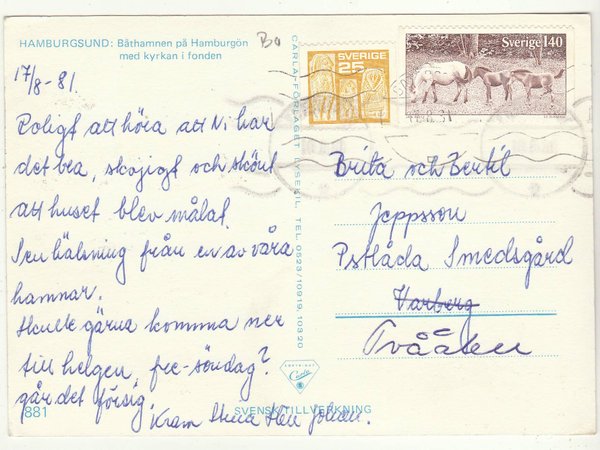 HAMBURGSUND: Båthamnen på Hamburgön
med kyrkan i fonden
17/8-81.
Roligt att höra att Ni har
det bra, skojigt och skönt
att huset blev målat.
Sen hälsning från en av våra
hamnar.
Skulle gärna komma ner
till helgen, fre-söndag?
går det för sig,
Kram Stina Johan.
881
SVENSK TILLVERKNING
COPYRIGHT
Carla
CARLA-FÖRLAGET LYSEKIL TEL. 0523/109 19, 103 20
SVERIGE
25
Sverige 140
Brita och Bertil
Jeppsson
Pstlåda Smedsgård
Varberg
Tvååker